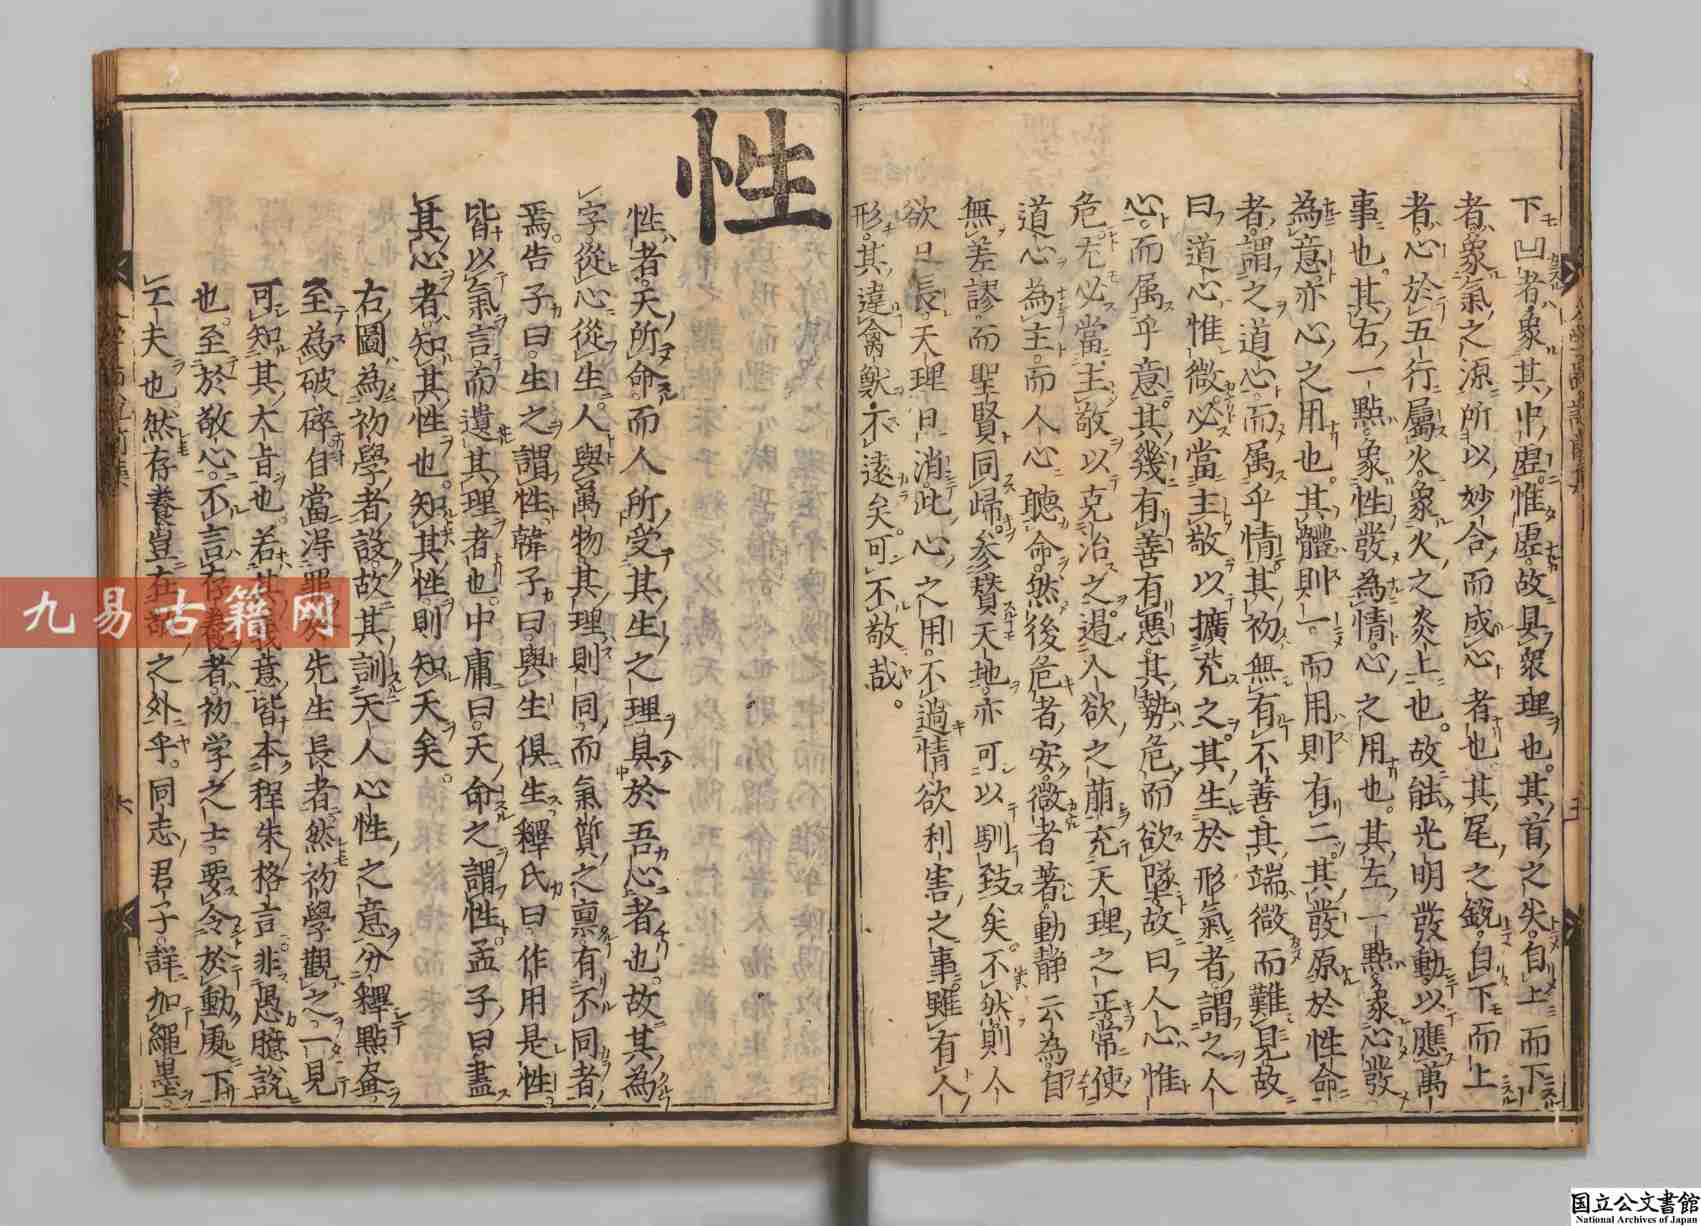 下凹者象其中虛惟虛故具衆理也其首之尖自上而下
者象氣之源所以妙合而成心者也其尾之銳自下而上
者心於五行屬火象火之炎上也故能光明發動以應萬
事也其右一點象性發為情心之用也其左一點象心發
為意亦心之用也其體則一而用則有二其發原於性命
者謂之道心而属乎情其初無有不善其端微而難見故
曰道心惟微必當主敬以擴充之其生於形氣者謂之人
心而属乎意其幾有善有惡其勢危而欲墜故曰人心惟
危尤必當主敬以克治之遏人欲之萠充天理之正常使
道心為主而人心聽命然後危者安微者著動静云為自
無差謬而聖賢同歸参賛天地亦可以馴致矣不然則人
欲日長天理日消此心之用不過情欲利害之事雖有人
形其違禽獣不遠矣可不敬哉
性
性者天所命而人所受其生之理具於吾心者也故其為
字從心從生人與萬物其理則同而氣質之禀有不同者
焉告子曰生之謂性韓子曰與生俱生釋氏曰作用是性
皆以氣言而遺其理者也中庸曰天命之謂性孟子曰盡
其心者知其性也知其性則知天矣
右圖為初學者設故其訓天人心性之意分釋點畫
至為破碎自當淂罪於先生長者然初學觀之一見
可知其大旨也若其義意皆本程朱格言非慿臆說
也至於敬心不言存養者初学之士要令於動處下
工夫也然存養豈在敬之外乎同志君子詳加繩墨
九易古籍网
国立公文書館
National Archives of Japan